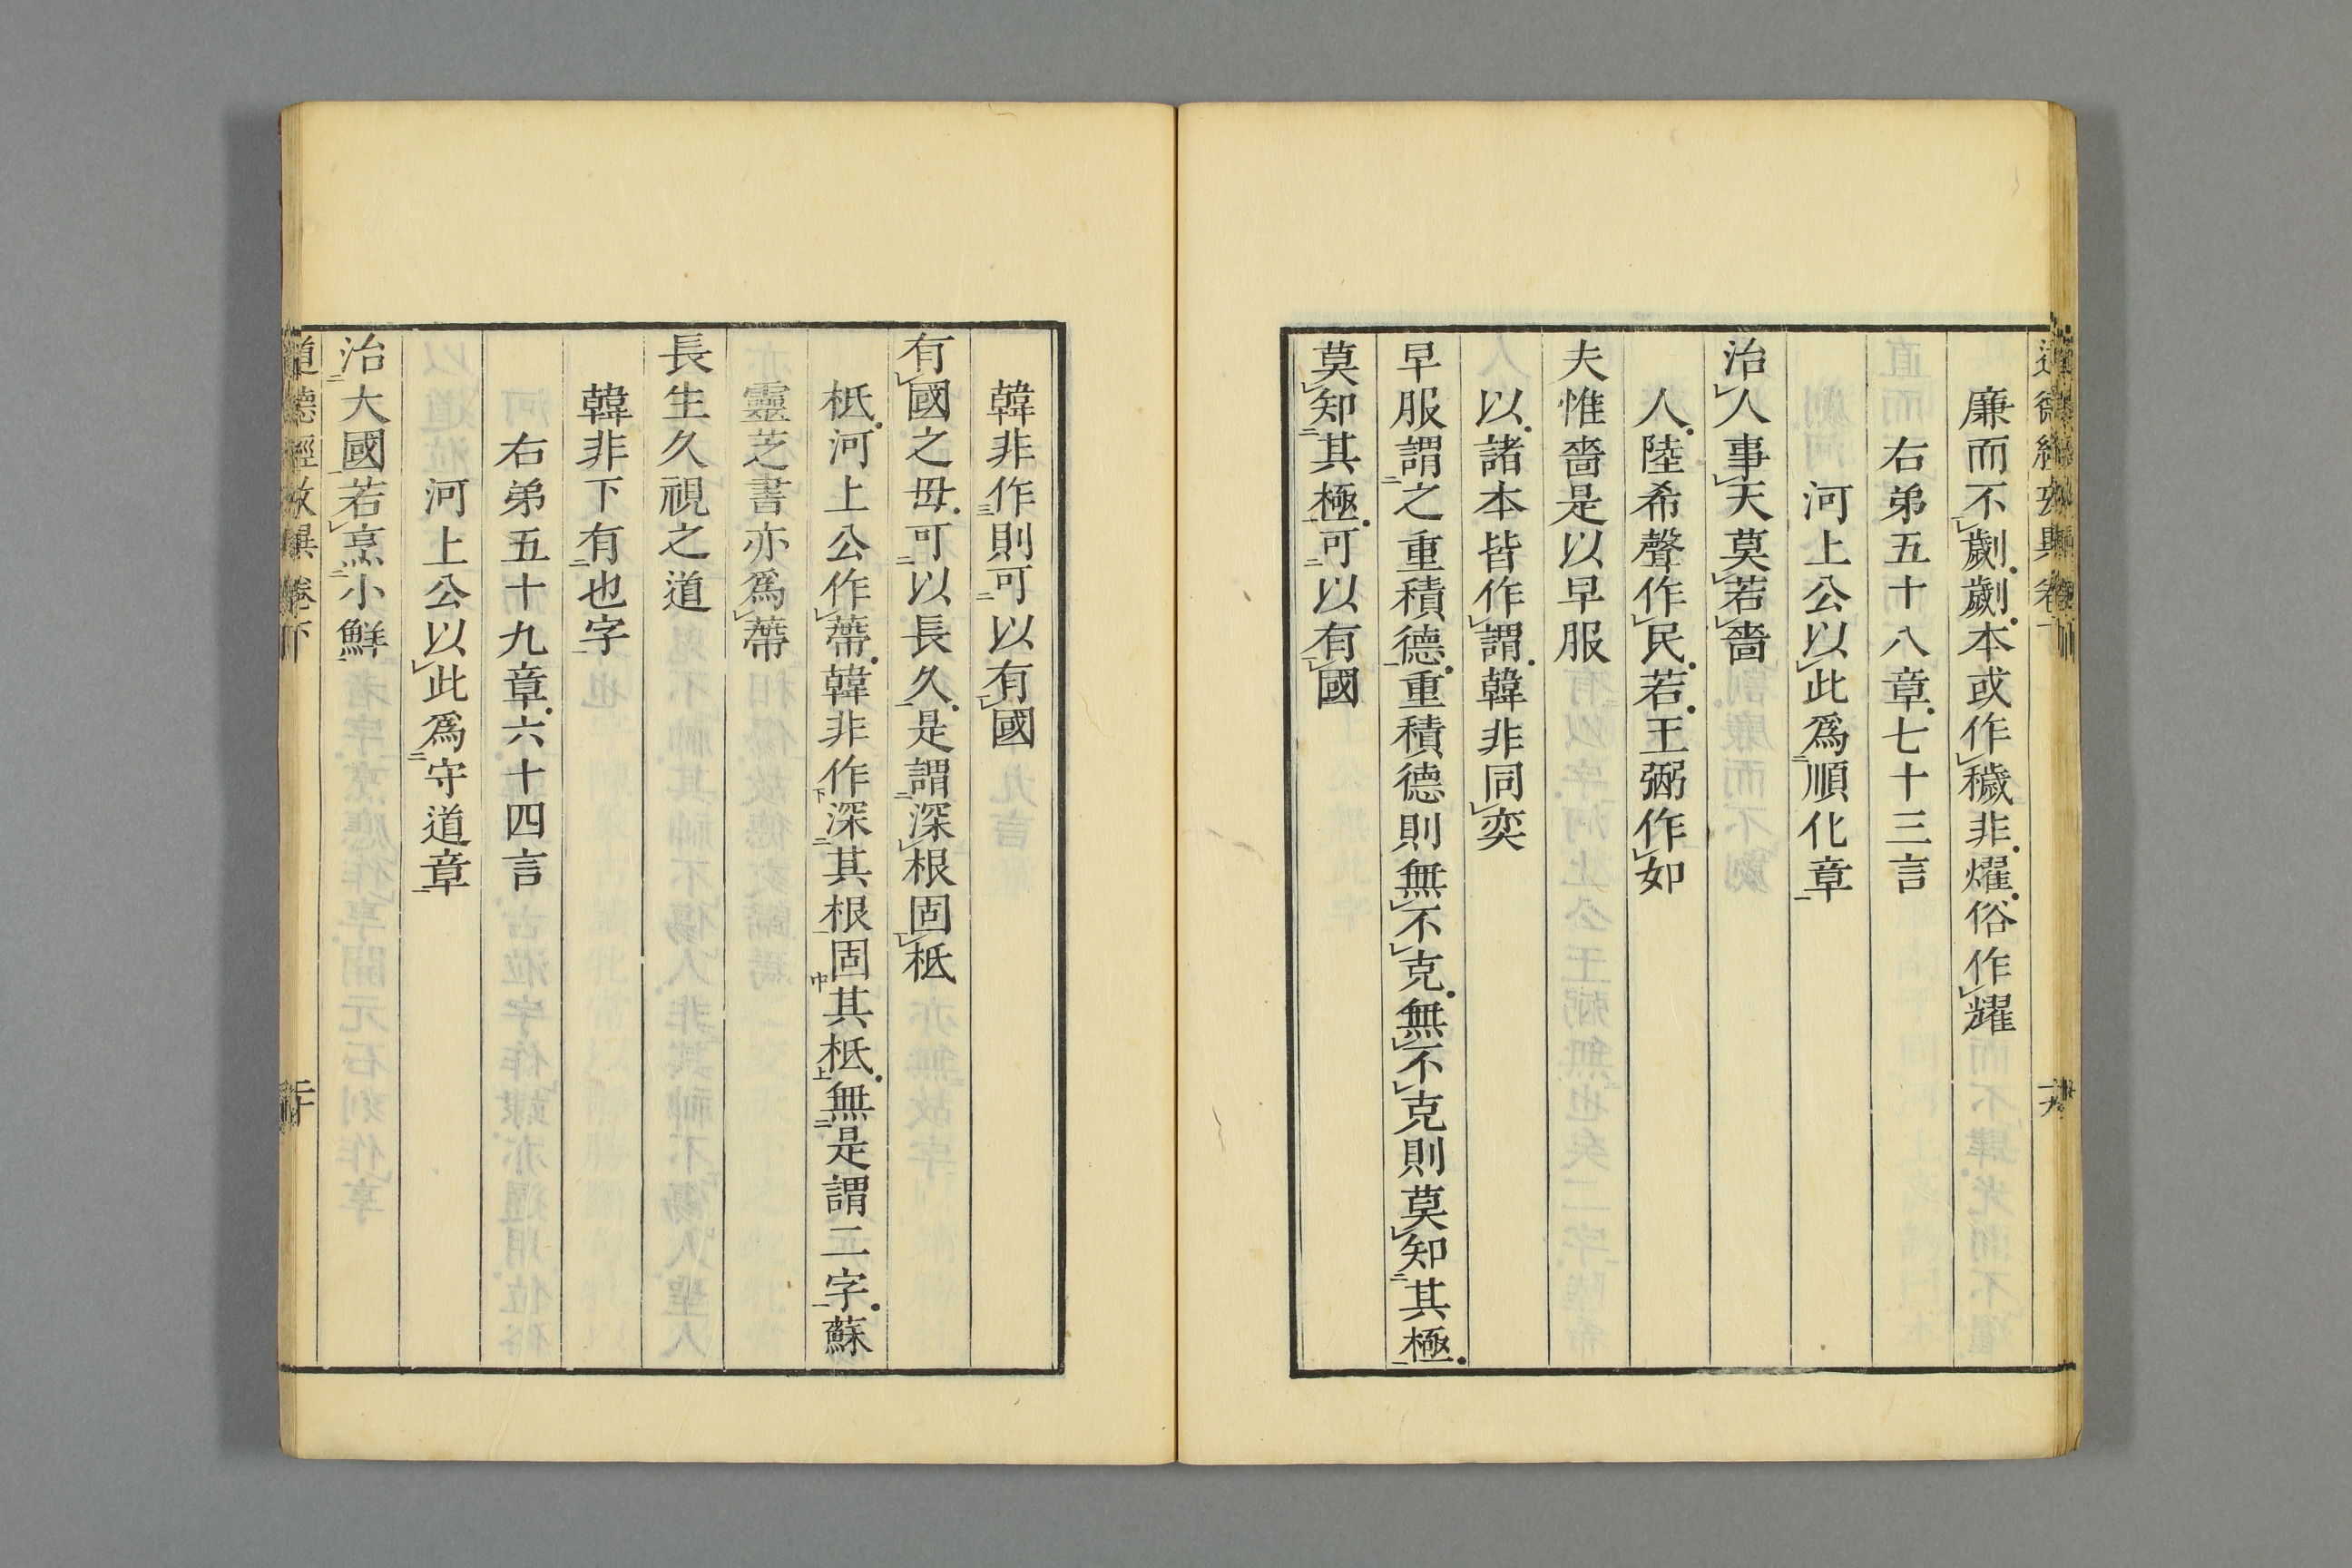 廉而不劌劌本或作穢非燿俗作耀
右弟五十八章七十三言
河上公以此爲順化章
治人事天莫若嗇
人陸希聲作民若王弼作如
夫惟嗇是以早服
以諸本皆作謂韓非同奕
早服謂之重積德重積德則無不克無不克則莫知其極
莫知其極可以有國
韓非作則可以有國
有國之母可以長久是謂深根固柢
柢河上公作蔕韓非作深其根固其柢無是謂二字蘇
靈芝書亦爲蔕
長生久視之道
韓非下有也字
右弟五十九章六十四言
河上公以此爲守道章
治大國若烹小鮮
道德經攷異卷下